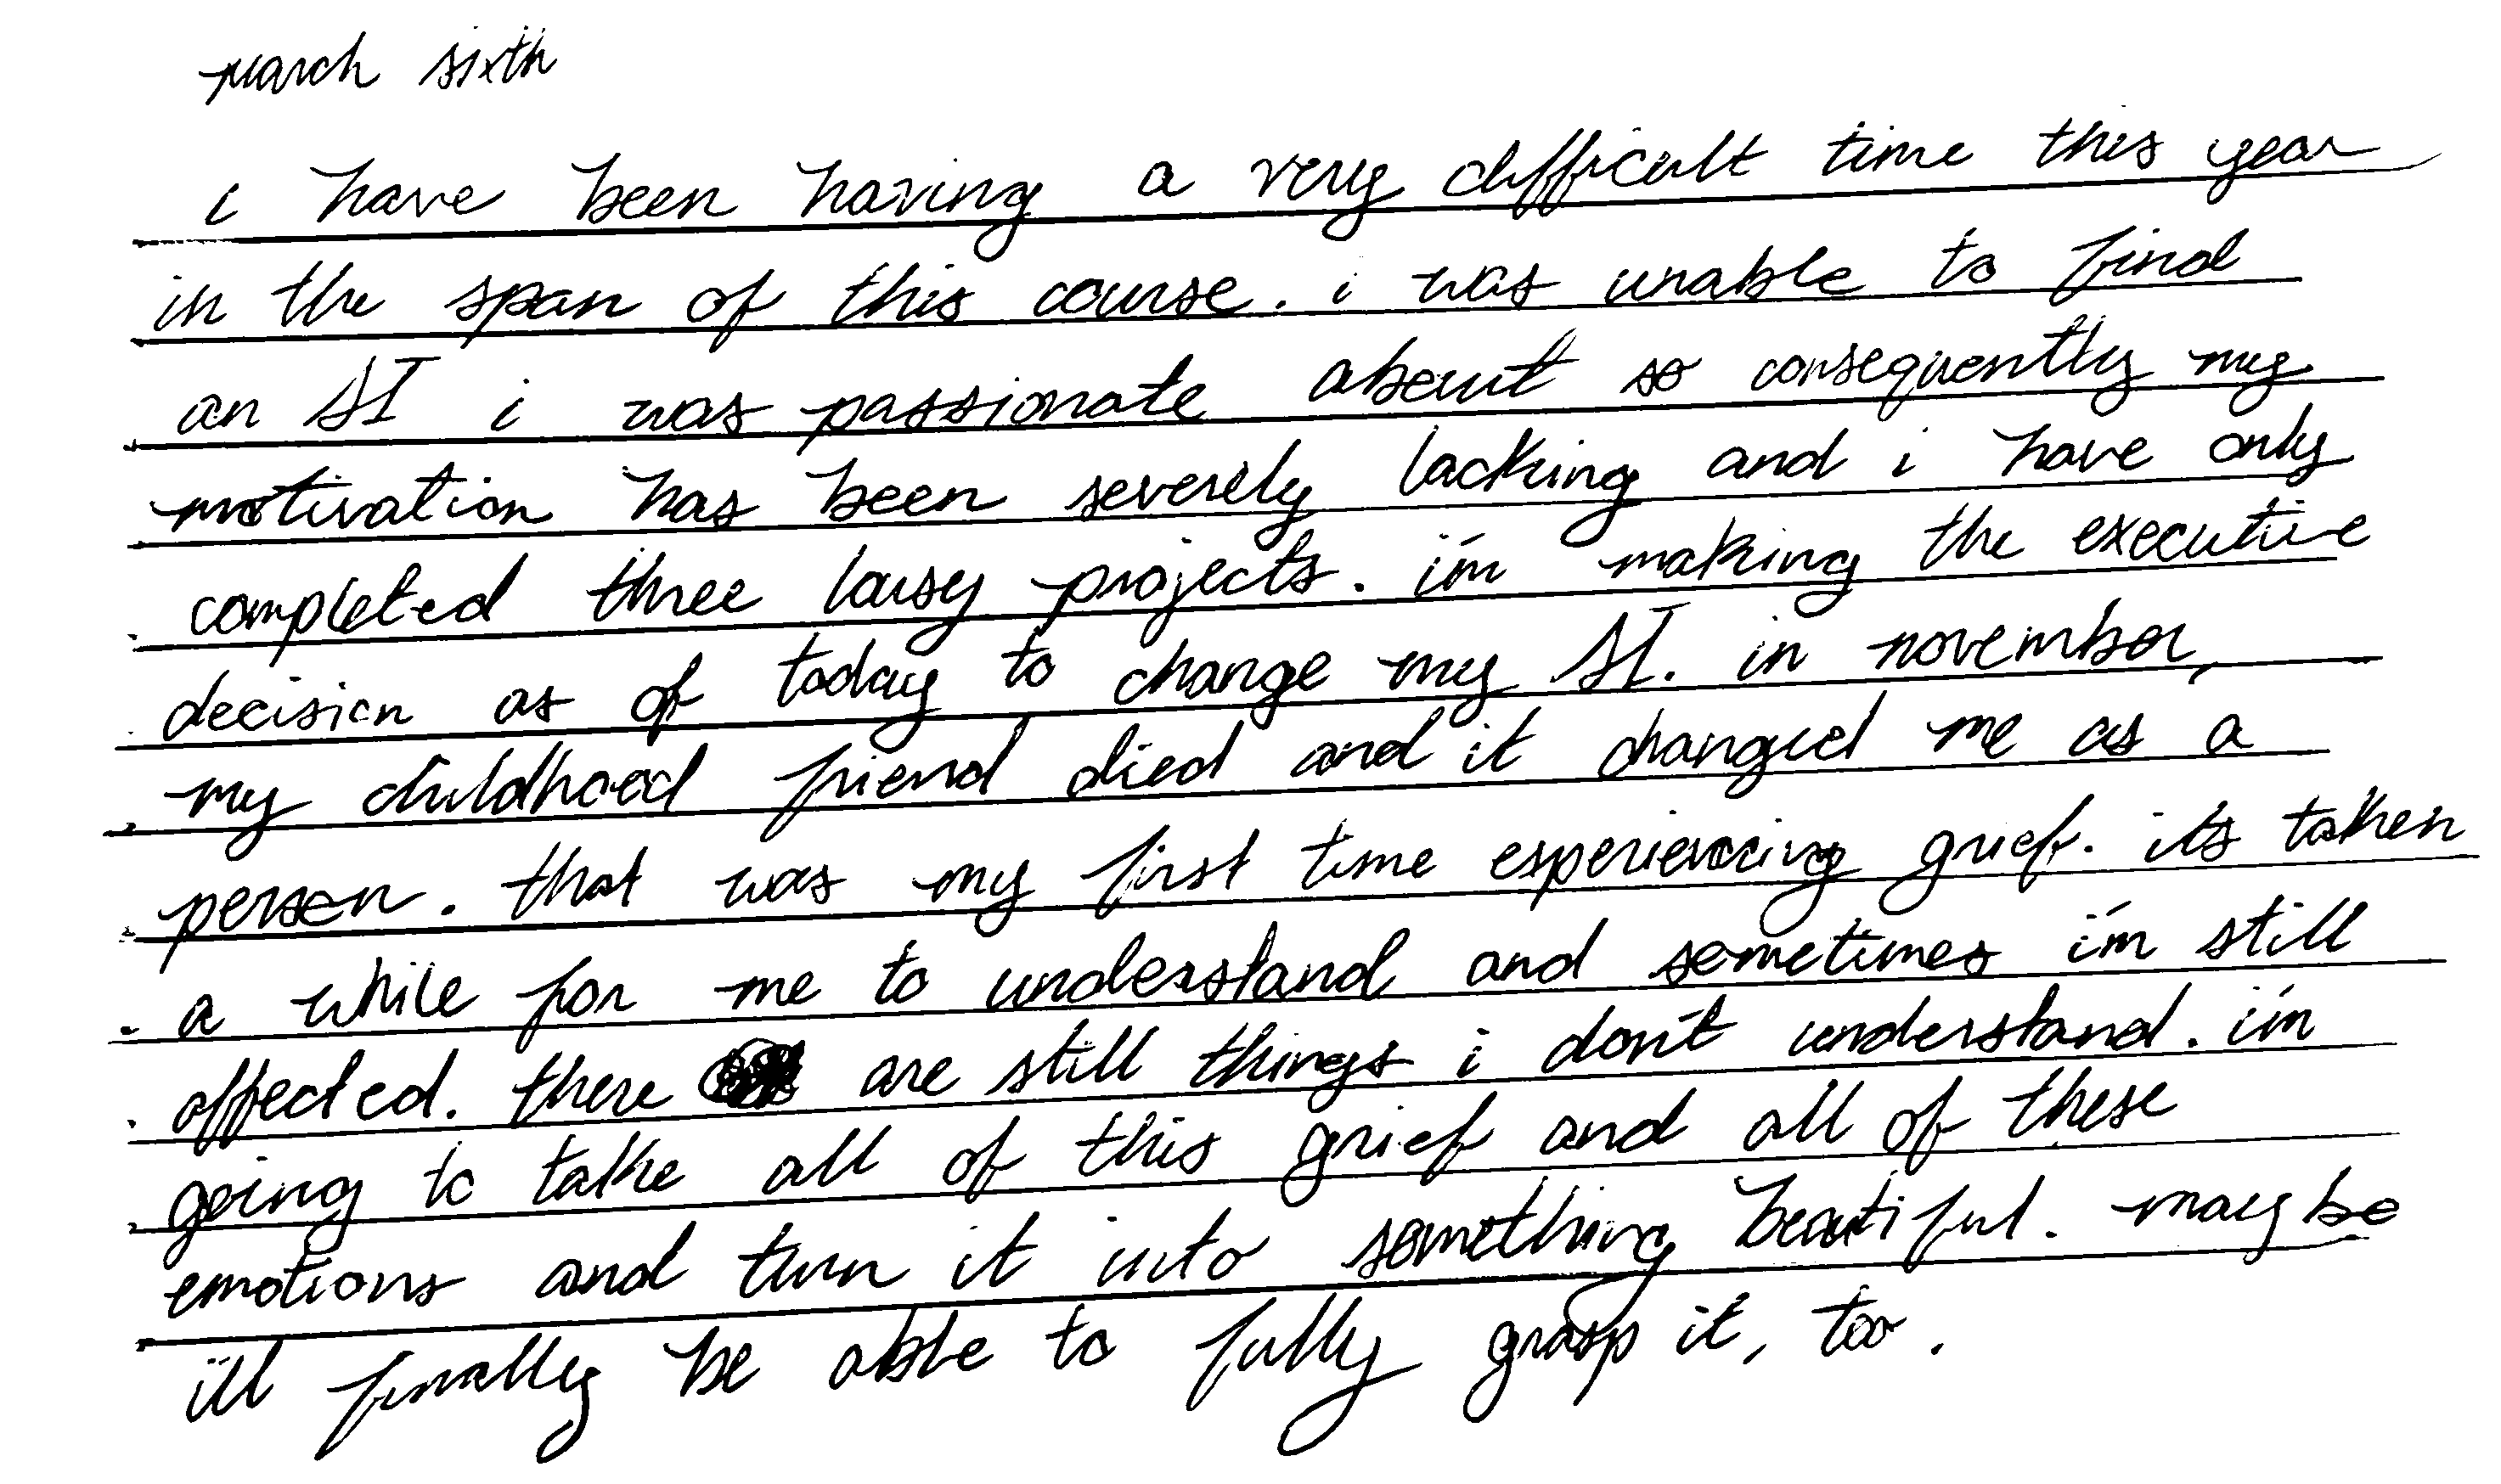 march sixth
i have been having a very difficult time this year
in the span of this course. i was unable to find
an SI i was passionate about so consequently my
motivation has been severely lacking and i have only
completed three lousy projects. i'm making the executive
decision as of today to change my SI. in november,
my childhood friend died and it changed me as a
person. that was my first time experiencing grief. its taken
a while for me to understand and sometimes i'm still
affected. there are still things i don't understand. i'm
going to take all of this grief and all of these
emotions and turn it into something beautiful. maybe
i'll finally be able to fully grasp it, too.